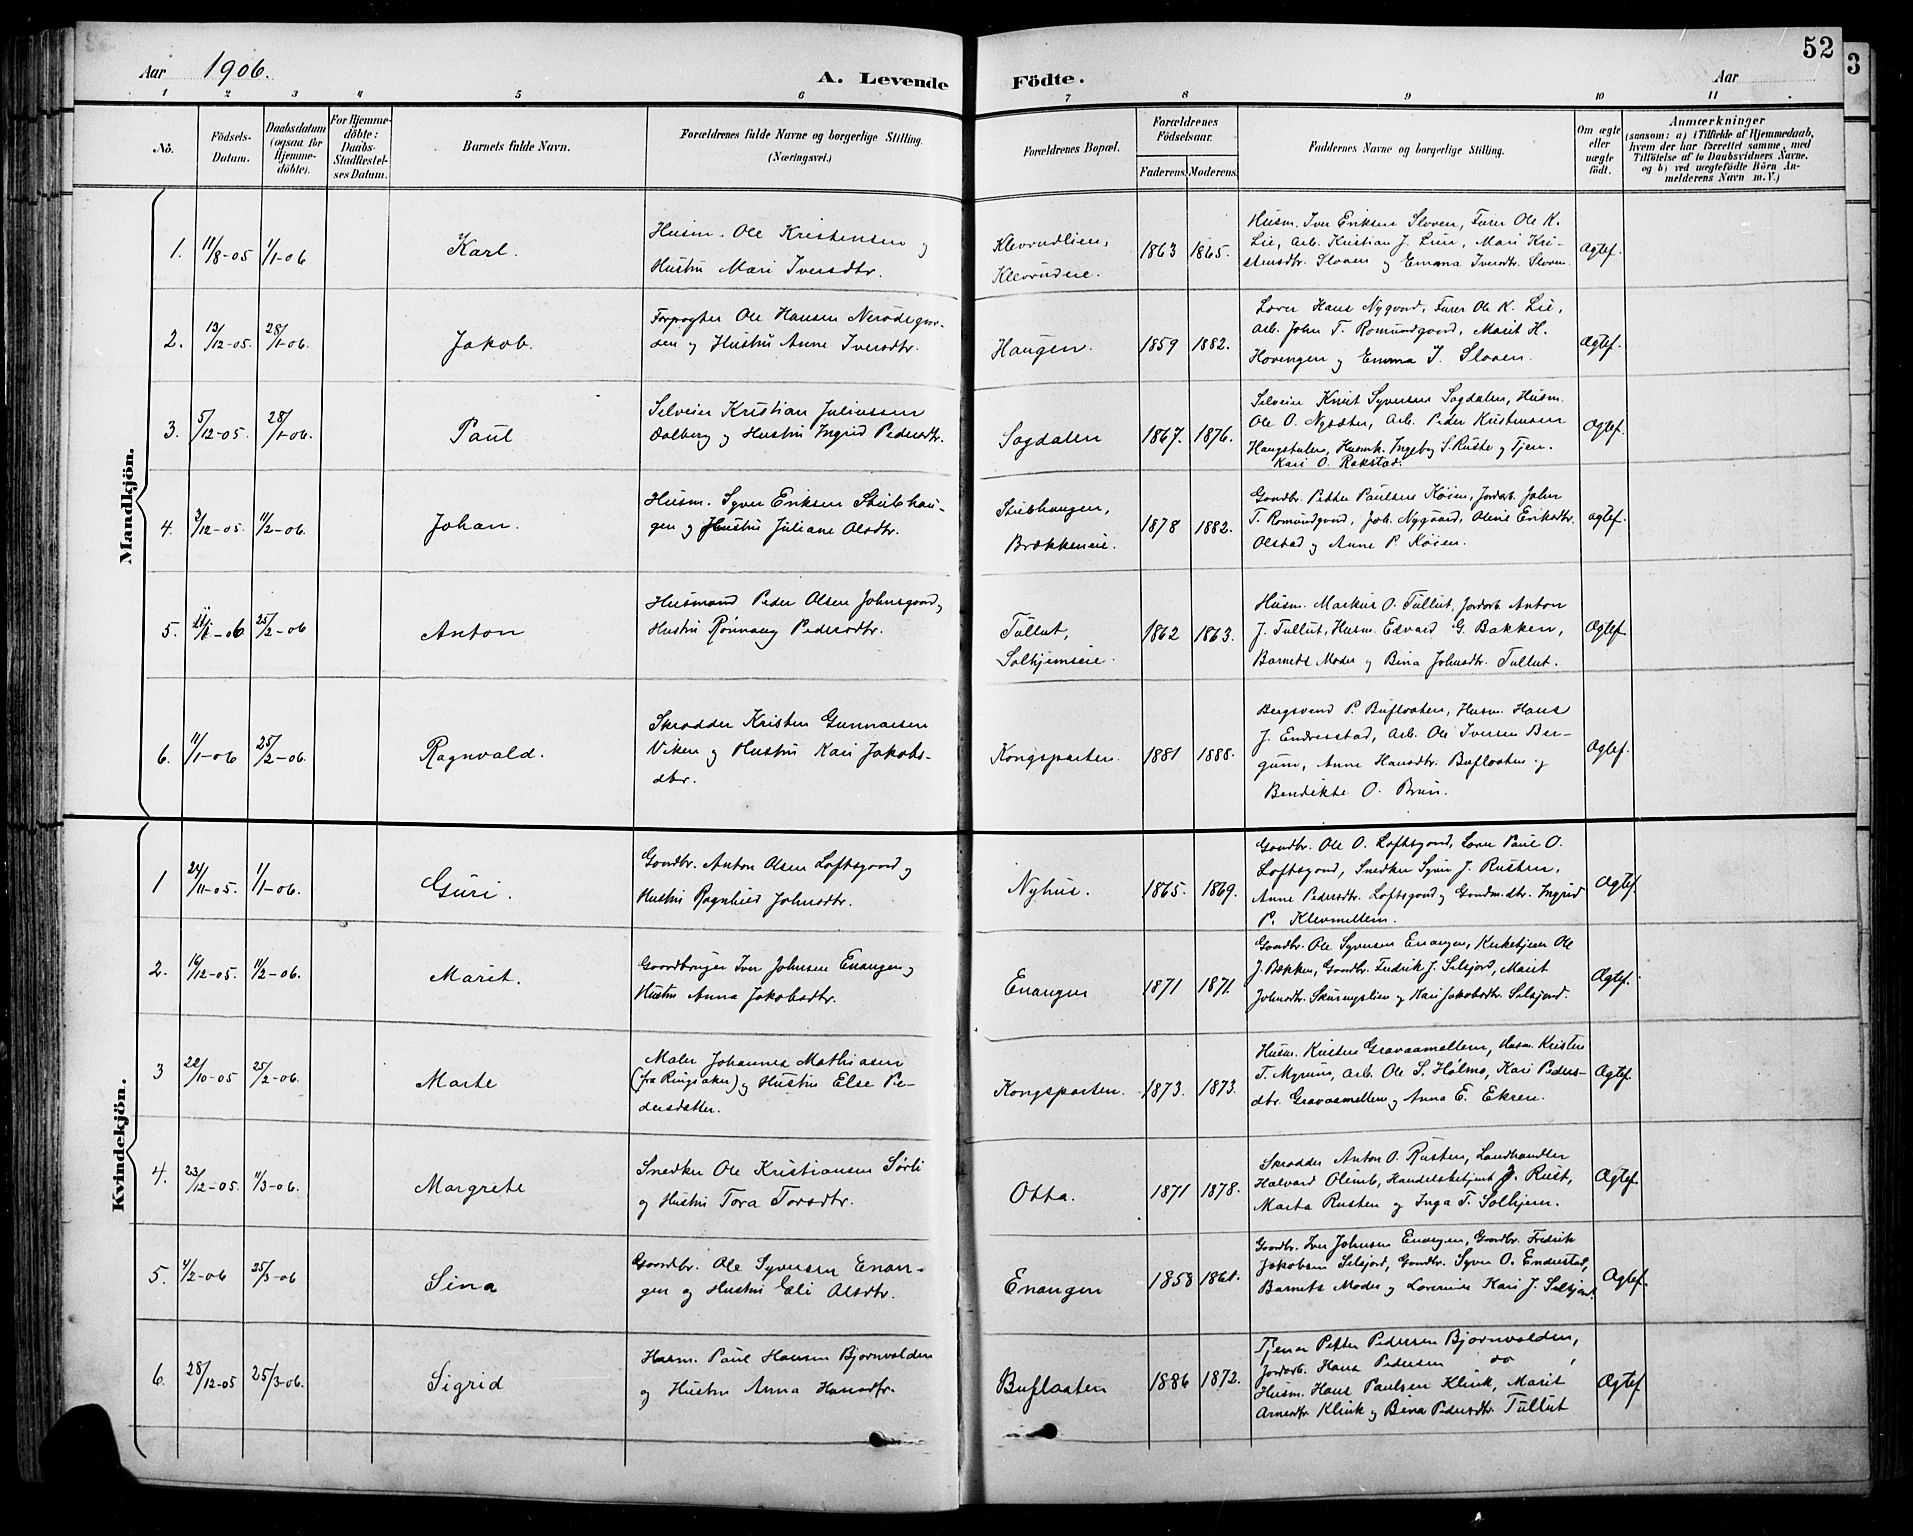 52
3
Aar 1906.
A. Levende Födte.
Aar
1 2 3 4 5 6 7 8 9 10 11
No.
Födsels-
Datum.
Daabsdatum
(ogsaa for
Hjemme-
döbte).
For Hjemme-
döbte:
Daabs-
Stadfæstel-
ses Datum.
Barnets fulde Navn.
Forældrenes fulde Navne og borgerlige Stilling.
(Næringsvei.)
Forældrenes Bopæl.
Forældrenes
Födselsaar.
Faderens. Moderens.
Faddernes Navne og borgerlige Stilling.
Om ægte
eller
uægte
födt.
Anmærkninger
(saasom: a) i Tilfælde af Hjemmedaab,
hvem der har forrettet samme, med
Tilföielse af to Daabsvidners Navne.
og b) ved uægtefödte Börn An-
melderens Navn m. V.)
Mandkjön.
1. 11/8-05 1/1-06 Karl.
Husm. Ole Kristensen og
Hustru Mari Iversdtr.
Klevrudlien,
Klevrudeie.
1863 1865.
Husm. Iver Eriksen Sloven, Furer Ole K.
Lie, Arb. Kristian J. Lien, Mari Kri-
stensdtr. Sloven og Emma Iversdtr. Sloven.
Ægtef.
2. 13/12-05. 28/1-06. Jakob.
Forpagter Ole Hansen Nerødegaar-
den og Hustru Anne Iversdtr.
Haugen. 1859 1882.
Lærer Hans Nygaard, Furer Ole K. Lie,
Arb. John T. Romundgaard, Marit H.
Hovengen og Emma I. Sloven.
Ægtef.
3. 5/12-05. 28/1-06. Paul
Selveier Kristian Juliussen
Dalberg og Hustru Ingrid Pedersdtr.
Sagdalen 1867. 1876.
Selveier Knut Syversen Sagdalen, Husm.
Ole O. Nysæter, Arb. Peder Kristensen
Haugstulen, Husmk. Ingeb g S. Ruste og Tjen.
Kari O. Rakstad.
Ægtef.
4. 3/12-05. 11/2-06. Johan.
Husm. Syver Eriksen Stubhau-
gen og Hustru Juliane Olsdtr.
Stubhaugen,
Brækkeneie.
1878 1882.
Gaardbr. Petter Paulsen Køien, Jordarb. John
T. Romundgaard, Joh. Nygaard, Oline Eriksdtr.
Olstad og Anne P. Køien.
Ægtef.
5. 11/1-06 25/2-06 Anton
Husmand Peder Olsen Johnsgaard og
Hustru Rønnaug Pedersdtr.
Tullut,
Solhjemseie.
1862 1863.
Husm. Markus O. Tullut, Jordarb. Anton
J. Tullut, Husm. Edvard G. Bakken,
Barnets Moder og Bina Johnsdtr. Tullut.
Ægtef
6. 11/1-06 25/2-06. Ragnvald.
Skrædder Kristen Gunnarsen
Viken og Hustru Kari Jakobs-
dtr.
Kongsparten. 1881 1888.
Bergsvend P. Buflaaten, Husm. Hans
J. Endresstad, Arb. Ole Iversen Ber-
gum, Anne Hansdtr. Buflaaten og
Bendikte O. Brun.
Ægtef.
Kvindekjön.
1 24/11-05. 1/1-06. Guri.
Gaardbr. Anton Olsen Loftsgaard og
Hustru Ragnhild Johnsdtr.
Nyhus. 1865. 1869.
Gaardbr. Ole O. Loftsgaard, Lærer Paul O.
Loftsgaard, Snedker Syver J. Rusten,
Anne Pedersdtr. Loftsgaard og Gaardm.dtr. Ingrid
P. Klevmellem.
Ægtef
2. 16/12-05. 11/2-06. Marit.
Gaardbruger Iver Johnsen Enangen og
Hustru Anna Jakobsdtr.
Enangen 1871 1871.
Gaardbr. Ole Syversen Enangen, Kirketjener Ole
J. Bækken, Gaardbr. Fredrik J. Selsjord, Marit
Johnsdtr. Skurengslien og Kari Jakobsdtr. Selsjord.
Ægtef.
3 22/10-05 25/2-06. Marte
Maler Johannes Mathiasen
(fra Ringsaker) og Hustru Else Pe-
dersdatter.
Kongsparten. 1873. 1873.
Husm. Kristen Gravaamellem, Husm. Kristen
T. Myrum, Arb. Ole S. Holmo, Kari Peders-
dtr. Gravaamellem og Anna E. Ekren.
Ægtef.
4. 23/12-05. 11/3-06. Margrete
Snedker Ole Kristiansen Sørli
og Hustru Tora Torsdtr.
Otta. 1871 1878.
Skrædder Anton O. Rusten, Landhandler
Halvard Olimb, Handelsbetjent J. Rust,
Marta Rusten og Inga T. Solhjem.
Ægtef.
5. 4/2-06 25/3-06 Sina
Gaardbr. Ole Syversen Enan-
gen og Hustru Eli Olsdtr.
Enangen 1858 1861.
Gaardbr. Iver Johnsen Enangen, Gaardbr. Fredrik
Jakobsen Selsjord, Gaardbr. Syver O. Endrestad,
Barnets Moder og Lærerinde Kari J. Selsjord.
Ægtef.
6. 28/12-05 25/3-06. Sigrid
Husm. Paul Hansen Bjørnvolden
og Hustru Anna Hansdtr.
Buflaaten 1886 1872.
Tjener Petter Pedersen Bjørnvolden,
Jordarb. Hans Pedersen do,
Husm. Hans Paulsen Klink, Marit
Arnesdtr. Klink og Bina Pedersdtr. Tullut
Ægtef